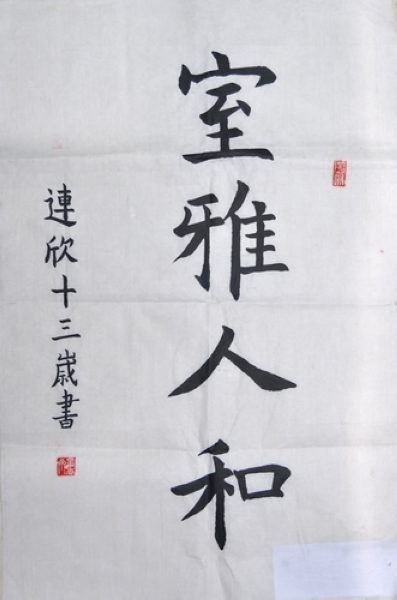 室雅人和
連欣十三歲書